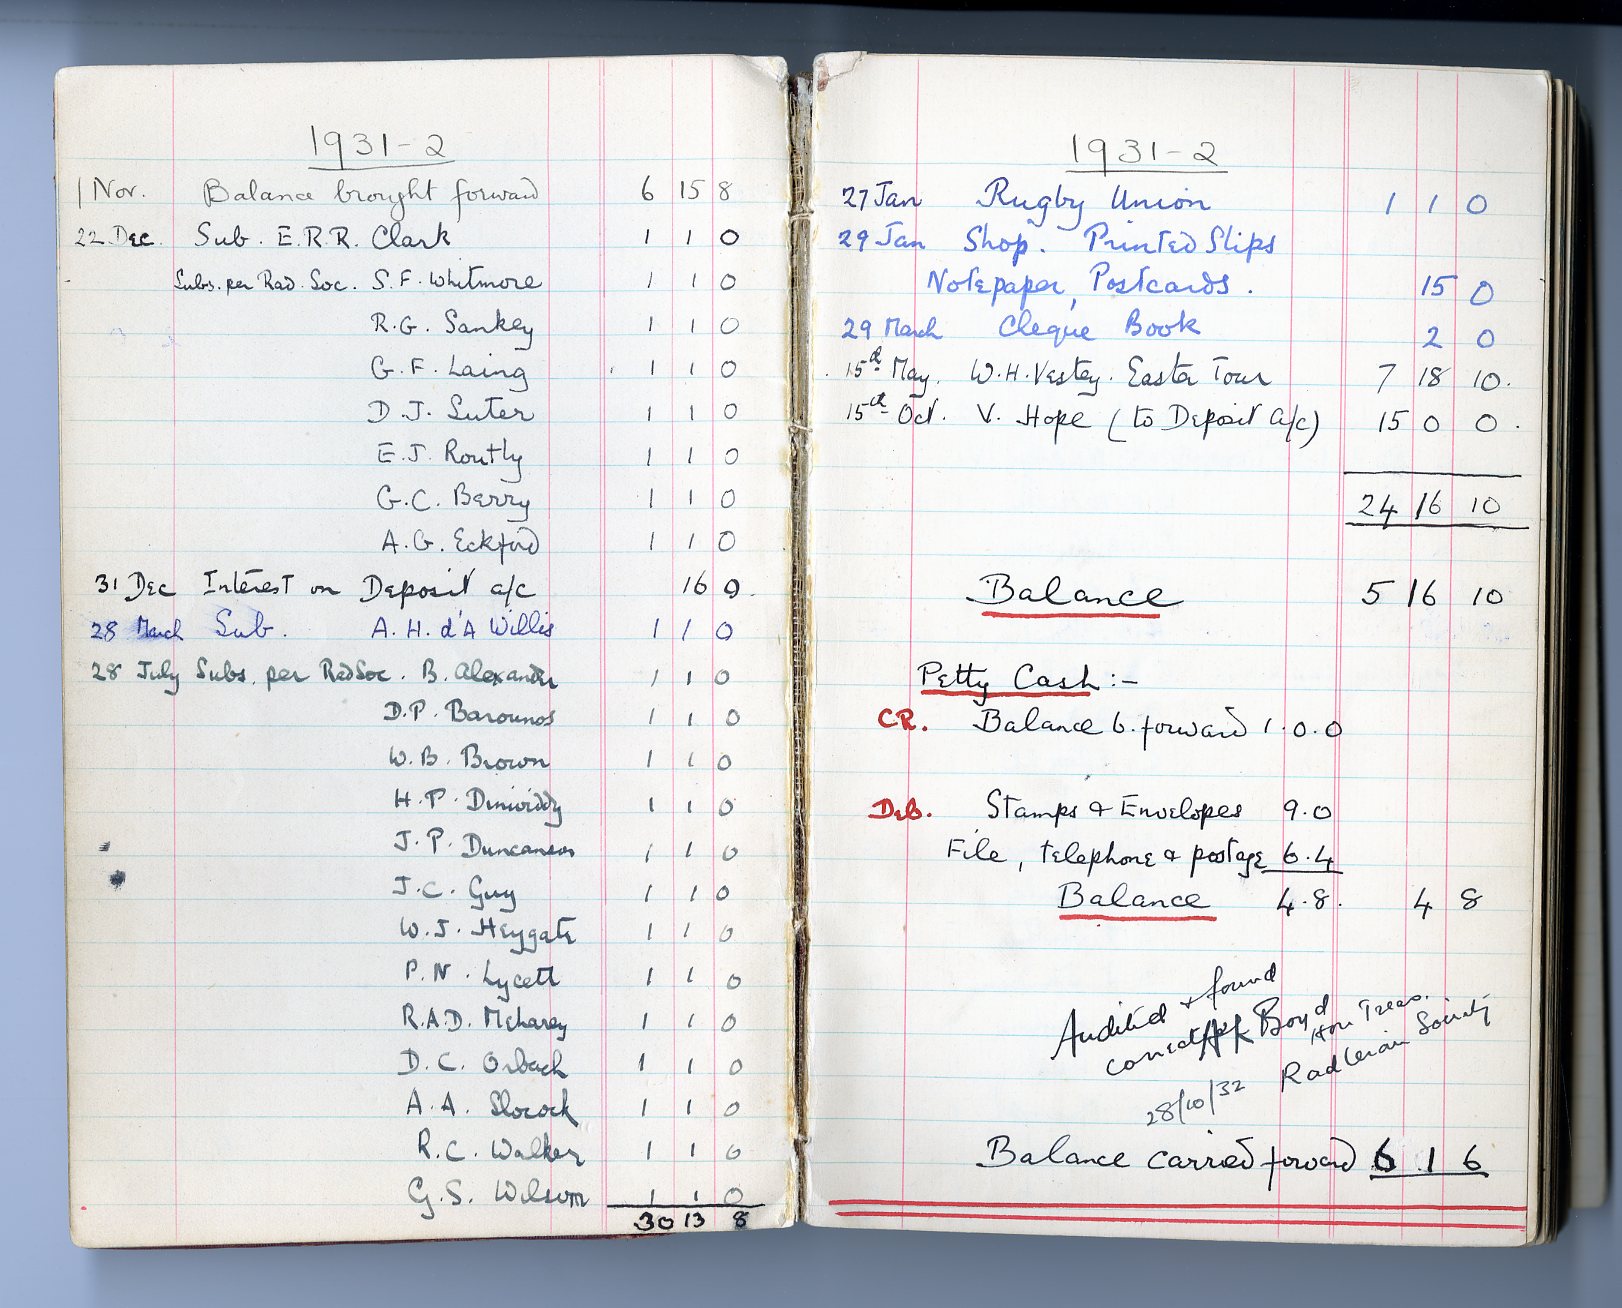 1931-2
1 Nov. Balance brought forward 6 15 8
22 Dec. Sub. E.R.R. Clark 1 1 0
Subs. per Rad. Soc. S.F. Whitmore 1 1 0
R.G. Sankey 1 1 0
G.F. Laing 1 1 0
D.J. Suter 1 1 0
E.J. Routly 1 1 0
G.C. Berry 1 1 0
A.G. Eckford 1 1 0
31 Dec Interest on Deposit a/c 16 0
28 March Sub. A.H. d'A Willis 1 1 0
28 July Subs. per Rad Soc. B. Alexander 1 1 0
D.P. Barounos 1 1 0
W.B. Brown 1 1 0
H.P. Dinwiddy 1 1 0
J.P. Duncanson 1 1 0
J.C. Guy 1 1 0
W.J. Heygate 1 1 0
P.N. Lycett 1 1 0
R.A.D. 1 1 0
D.C. Orbach 1 1 0
A.A. Slocock 1 1 0
R.C. Walker 1 1 0
G.S. Wilson 1 1 0
30 13 8
1931-2
27 Jan Rugby Union 1 1 0
29 Jan Shop. Printed Slips
Notepaper, Postcards. 15 0
29 March Cheque Book 2 0
15th May. W.H. Vestey. Easter Tour 7 18 10.
15th Oct. V. Hope (to Deposit a/c) 15 0 0.
24 16 10
Balance 5 16 10
Petty Cash:-
CR. Balance b. forward 1.0.0
Deb. Stamps & Envelopes 9.0
File, telephone & postage 6.4
Balance 4.8. 4 8
Audited & found
correct Boyd
Hon Treas.
28/10/32 Radleian Society
Balance carried forward 6 1 6